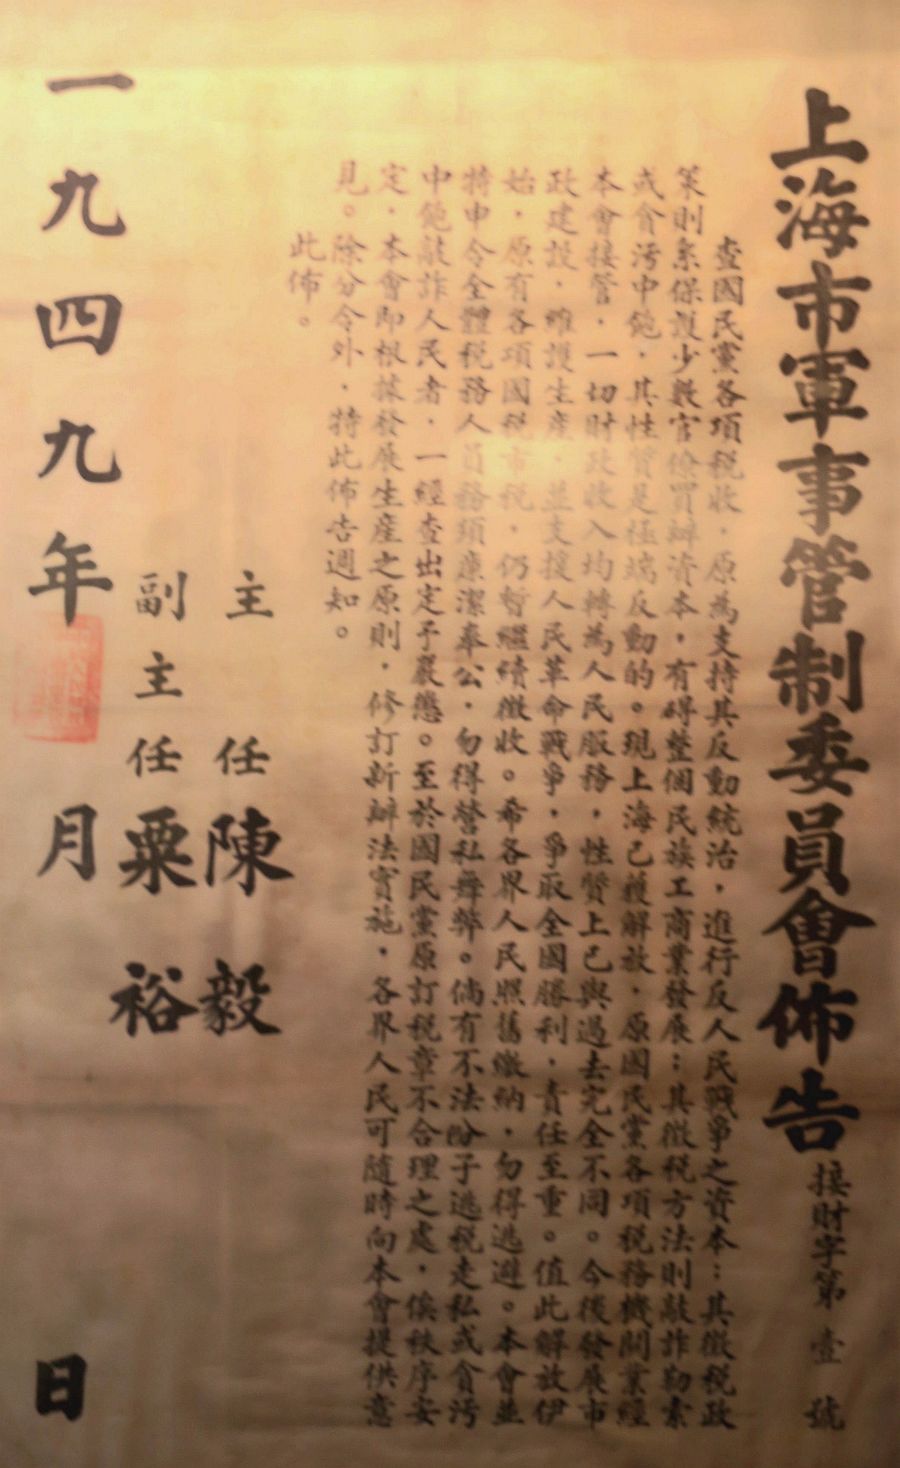 上海市軍事管制委員會佈告
接財字第壹號
查國民黨各項税收，原為支持其反動統治，進行反人民戰爭之資本；其徵税政
策則系保護少數官僚買辦資本，有碍整個民族工商業發展；其徵税方法則敲詐勒索
或貪污中飽，其性質是極端反動的。現上海已獲解放，原國民黨各項税務機關業經
本會接管，一切財政收入均轉為人民服務，性質上已與過去完全不同。今後發展市
政建設，維護生産，並支援人民革命戰爭，爭取全國勝利，責任至重。值此解放伊
始，原有各項國税市税，仍暫繼續徵收。希各界人民照舊繳納，勿得逃避。本會並
特申令全體税務人員務須廉潔奉公，勿得營私舞弊。倘有不法份子逃税走私或貪污
中飽敲詐人民者，一經查出定予嚴懲。至於國民黨原訂税章不合理之處，俟秩序安
定，本會即根據發展生産之原則，修訂新辦法實施，各界人民可隨時向本會提供意
見。除分令外，特此佈告週知。
此佈。
主任陳毅
副主任粟裕
一九四九年月日